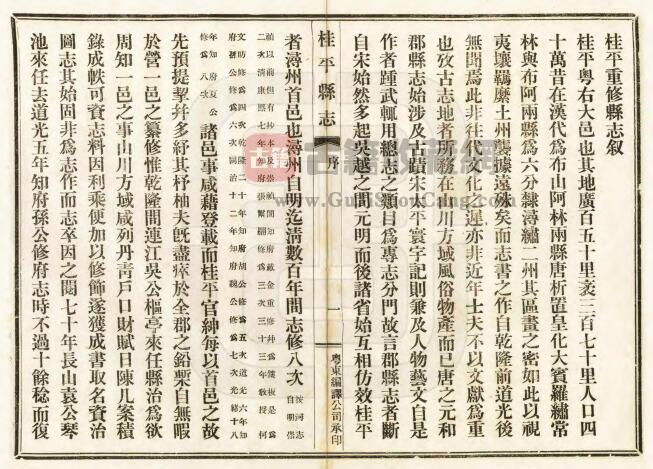 桂平重修縣志敘
桂平粵右大邑也其地廣百五十里袤三百七十里人口四
十萬昔在漢代為布山阿林兩縣唐析置皇化大賓羅繡常
林與布阿兩縣為六分隸潯繡二州其區畫之密如此以視
夷壤羈縻土州襲據遠矣而志書之作自乾隆前道光後
無聞焉此非往代文化之遲亦非近年士夫不以文獻為重
也攷古志地者所務在山川方域風俗物產而已唐之元和
郡縣志始涉及古蹟宋太平寰宇記則兼及人物藝文自是
作者踵武輒用總志之類目為專志分門故言郡縣志者斷
自宋始然多起吳越之間元明而後諸省始互相仿效桂平
桂平縣志
序
一
粵東編譯公司承印
者潯州首邑也潯州自明迄淸數百年間志修八次
按河志自明崇
禎以前但有抄本及崇禎間
二次清康熙十年知府
文昉修為四次
府孫公修為六次同治十二年知府魏公修為七次光緒十八
年知府夏公
修為八次
諸邑事咸藉登載而桂平官紳每以首邑之故
先預提挈幷多紓其杼柚夫旣盡瘁於全郡之鉛槧自無暇
於營一邑之纂修惟乾隆間連江吳公樞亭來任縣治為欲
周知一邑之事山川方域咸列丹靑戶口財賦日陳几案積
錄成帙可資志料因利乘便加以修飾遂獲成書取名資治
圖志其始固非為志作而志卒因之閱七十年長山袁公琴
池來任去道光五年知府孫公修府志時不過十餘稔而復